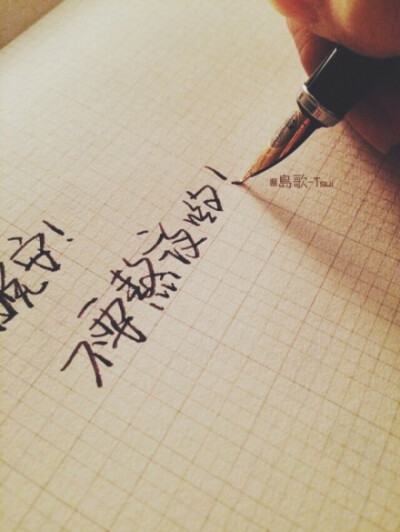 晚安!
不要熬夜哟!
島歌-Tsui